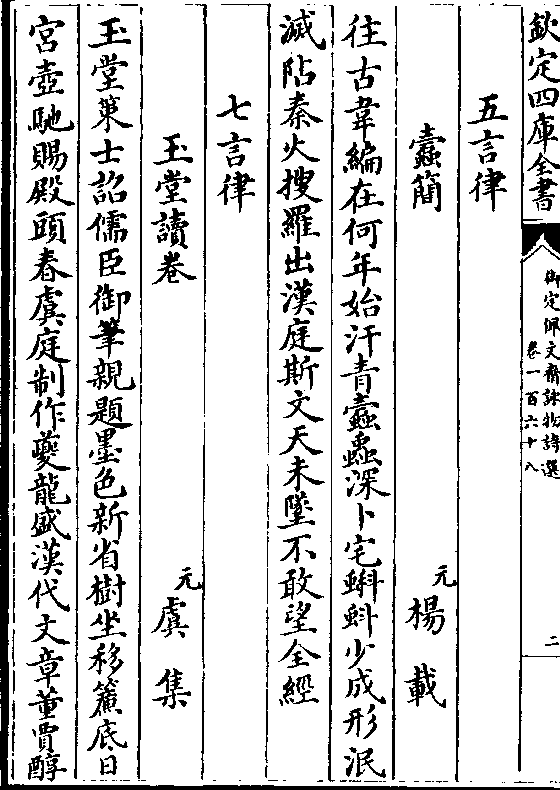 欽定四庫全書
御定佩文齋詠物詩選
卷一百六十八
二
五言律
蠹簡
元
楊載
往古韋編在何年始汗青蠹蟲深卜宅蝌蚪少成形泯
滅阽秦火搜羅出漢庭斯文天未墜不敢望全經
七言律
玉堂讀卷
元
虞集
玉堂策士詔儒臣御筆親題墨色新省樹坐移簾底日
宮壺馳賜殿頭春虞庭制作夔龍盛漢代文章董賈醇